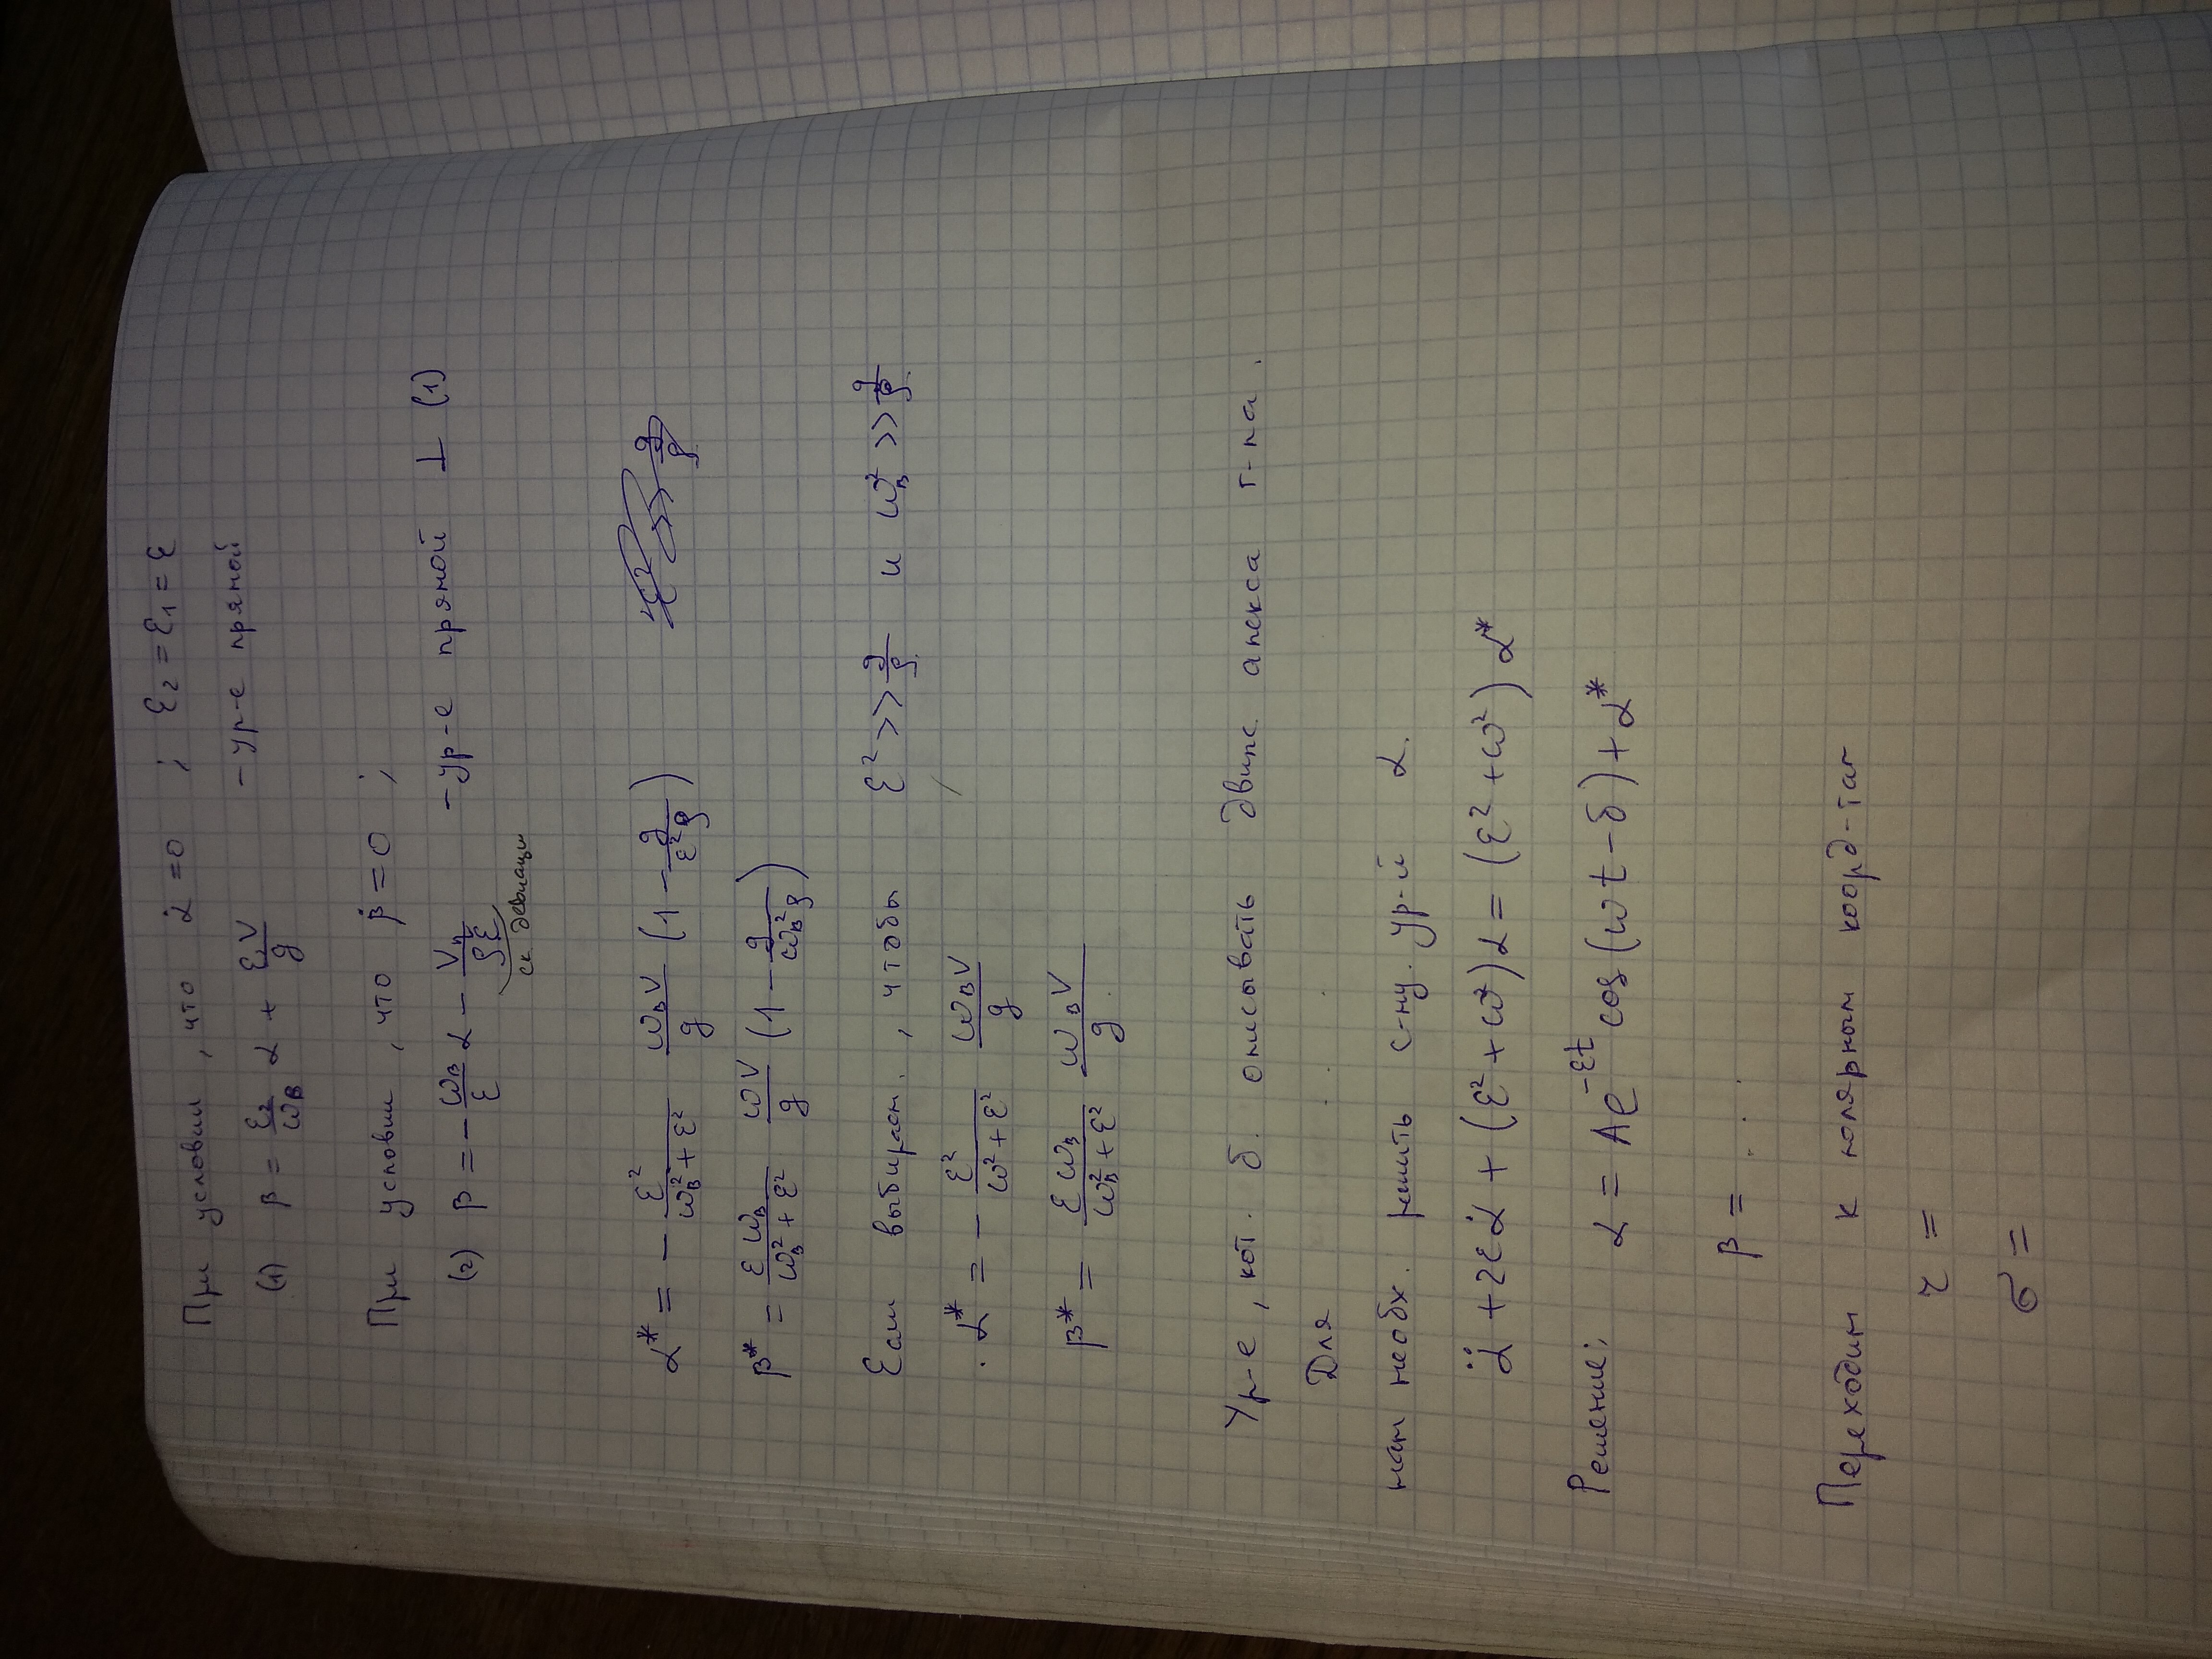 При условии, что α̇ = 0 ; ε₂ = ε₁ = ε
(1) β = ε₂/ω_B α + εV/g - ур-е прямой
При условии, что β̇ = 0 ;
(2) β = - ω_B/ε α - - ур-е прямой ⊥ (1)
ск. девиации
α* = - ε²/(ω_B² + ε²) ω_B V/g (1 - g/(ε²ρ))
β* = ε ω_B/(ω_B² + ε²) ωV/g (1 - g/(ω_B²ρ))
Если выбираем, чтобы ε² >> g/ρ и ω_B² >> g/ρ
α* = - ε²/(ω² + ε²) ω_B V/g
β* = ε ω_B/(ω_B² + ε²) ω_B V/g
Ур-е, кот. б. описывать движ. апекса г-па.
Для
нам необх. решить с-му. ур-й α.
α̈ + 2εα̇ + (ε² + ω²)α = (ε² + ω²)α*
Решение: α = Ae^(-εt) cos(ωt - δ) + α*
β =
Переходим к полярным коорд-там
r =
σ =